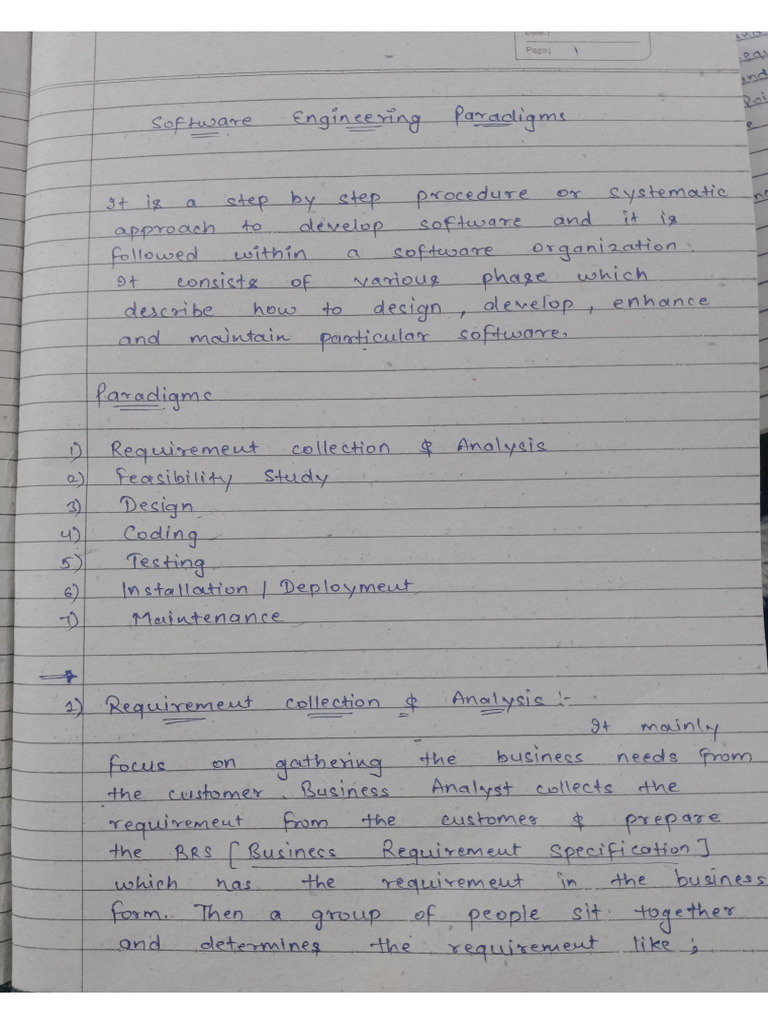 Page: 1
Software Engineering Paradigms
It is a step by step procedure or systematic
approach to develop software and it is
followed within a software organization.
It consists of various phase which
describe how to design, develop, enhance
and maintain particular software.
Paradigms
1) Requirement collection & Analysis
2) Feasibility Study
3) Design
4) Coding
5) Testing
6) Installation / Deployment
7) Maintenance
→
1) Requirement collection & Analysis :-
It mainly
focus on gathering the business needs from
the customer. Business Analyst collects the
requirement from the customer & prepare
the BRS [Business Requirement Specification]
which has the requirement in the business
form. Then a group of people sit together
and determines the requirement like ;